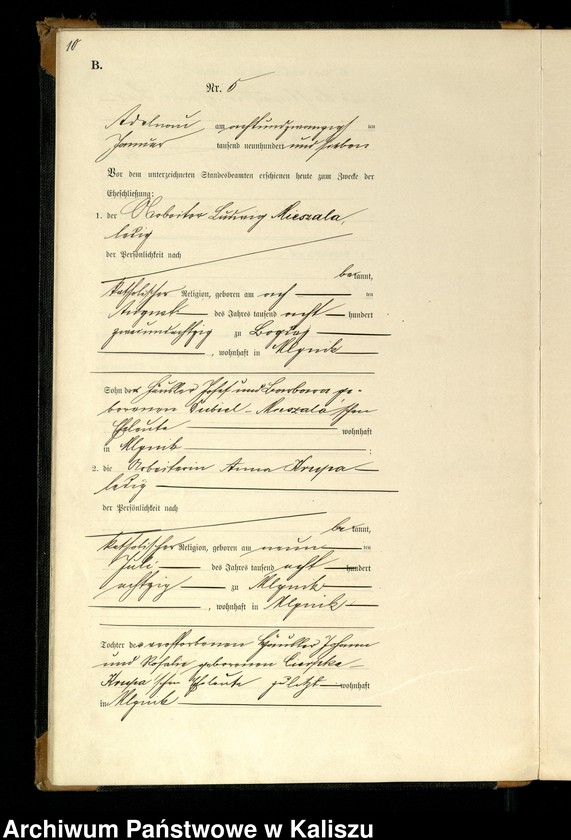 10
B.
Nr. 5
Adelnau am achtundzwanzigsten
Januar tausend neunhundert und sieben
Vor dem unterzeichneten Standesbeamten erschienen heute zum Zwecke der
Eheschließung:
1. der Arbeiter Ludwig Mieszala,
ledig
der Persönlichkeit nach
bekannt,
katholischer Religion, geboren am ten
August des Jahres tausend acht hundert
zweiundachtzig zu
, wohnhaft in Mlynik
Sohn der Häusler Josef und Barbara ge-
borenen Mieszala'schen
Eheleute wohnhaft
in Mlynik
2. die Arbeiterin Anna Krupa
ledig
der Persönlichkeit nach
bekannt,
katholischer Religion, geboren am neun ten
Juli des Jahres tausend acht hundert
achtzig zu Mlynik
, wohnhaft in Mlynik
Tochter der verstorbenen Häusler Johann
und Rosalie geborenen
Krupa'schen Eheleute zuletzt wohnhaft
in Mlynik
Archiwum Państwowe w Kaliszu